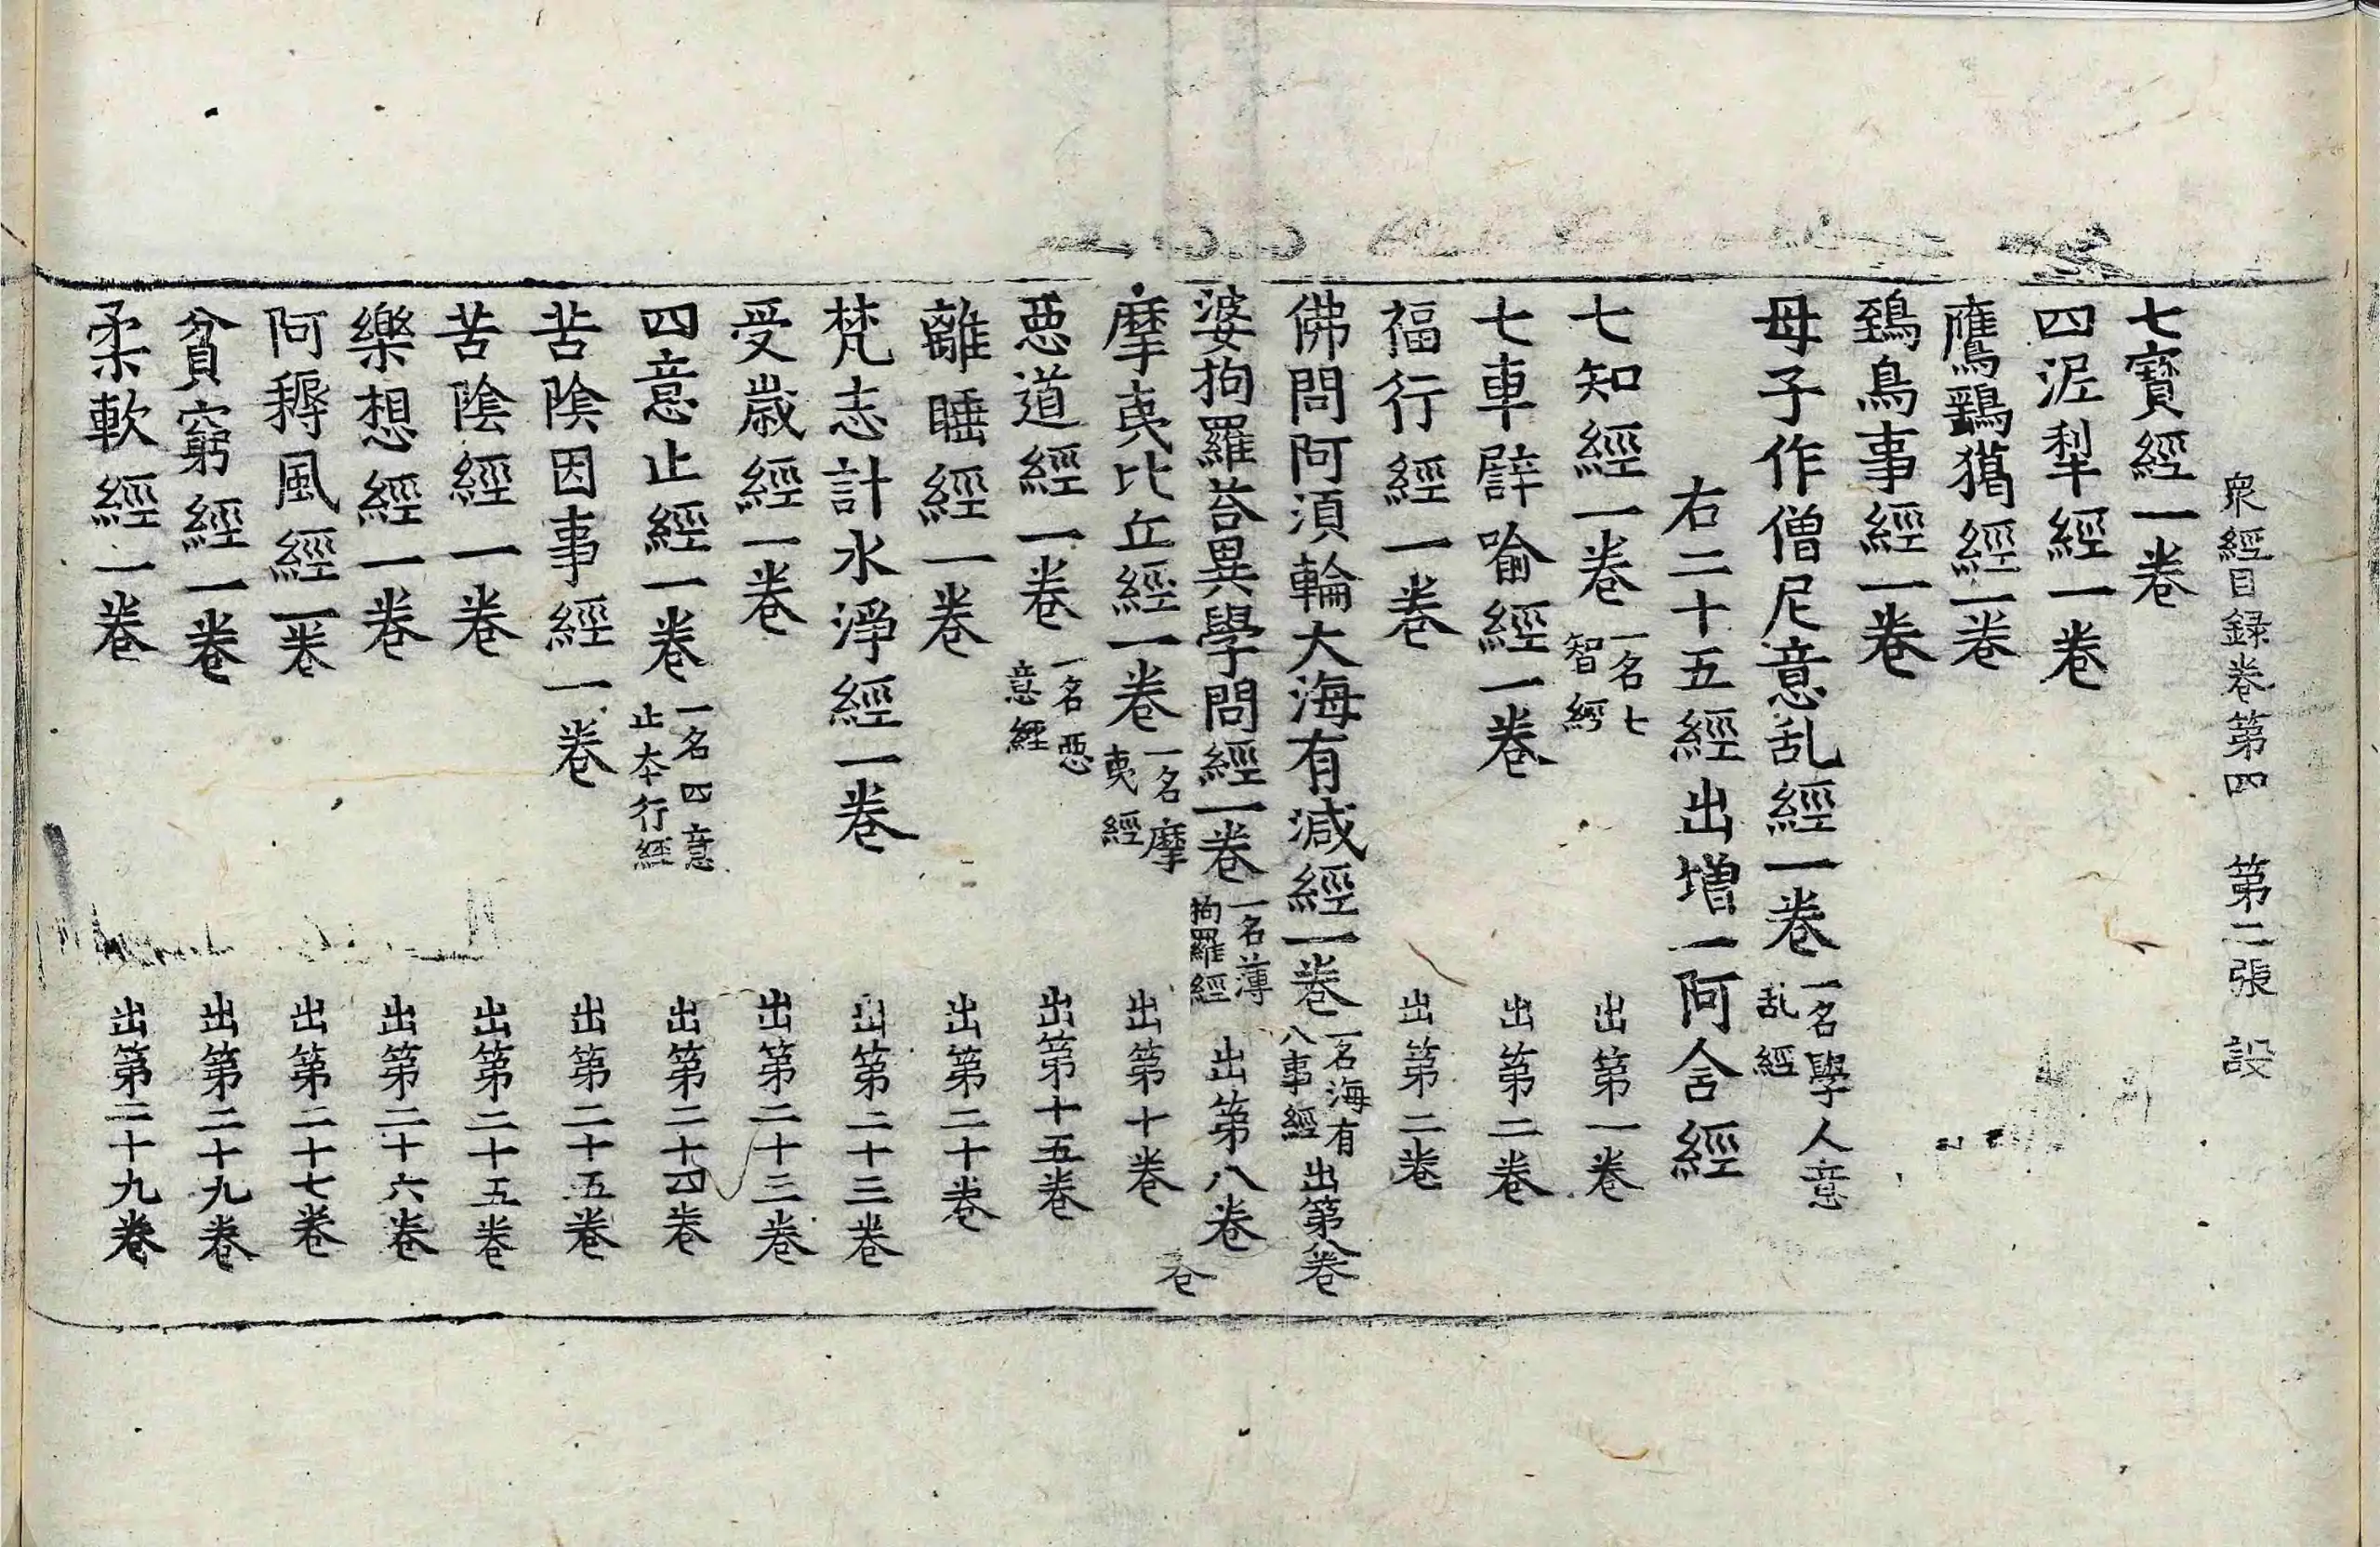 衆經目録卷第四　第二張　設
七寶經一卷
四泥犁經一卷
鷹鷂獦經一卷
鵄鳥事經一卷
母子作僧尼意乱經一卷 一名學人意乱經
右二十五經出増一阿含經
七知經一卷 一名七智經 出第一卷
七車譬喻經一卷 出第二卷
福行經一卷 出第二卷
佛問阿湏輪大海有減經一卷 一名海有八事經 出第八卷
婆拘羅荅異學問經一卷 一名薄拘羅經 出第八卷
摩夷比丘經一卷 一名摩夷經 出第十卷
惡道經一卷 一名惡意經 出第十五卷
離睡經一卷 出第二十卷
梵志計水淨經一卷 出第二十三卷
受歲經一卷 出第二十三卷
四意止經一卷 一名四意止本行經 出第二十四卷
苦陰因事經一卷 出第二十五卷
苦陰經一卷 出第二十五卷
樂想經一卷 出第二十六卷
阿耨風經一卷 出第二十七卷
貧窮經一卷 出第二十九卷
柔軟經一卷 出第二十九卷